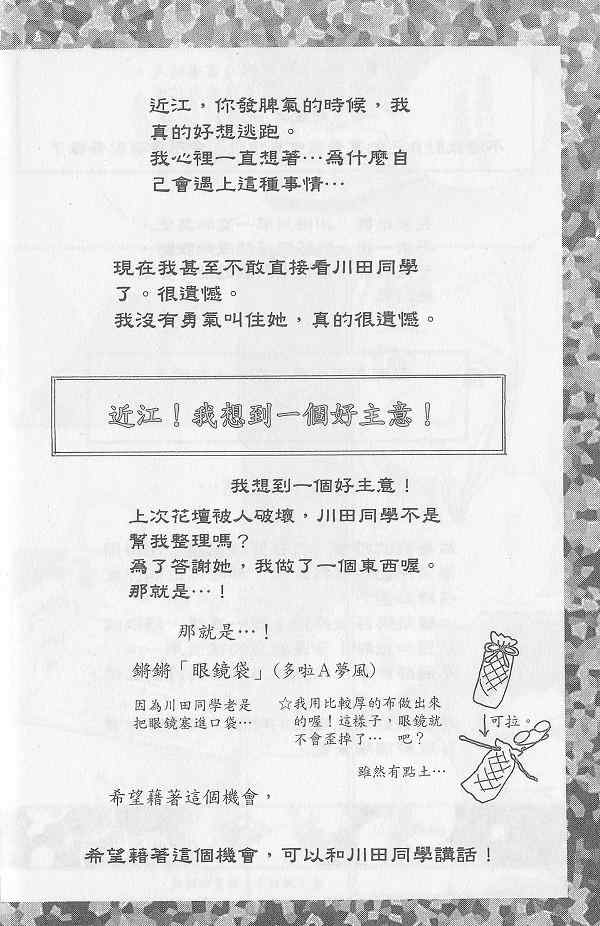 近江，你發脾氣的時候，我
真的好想逃跑。
我心裡一直想著…為什麼自
己會遇上這種事情…
現在我甚至不敢直接看川田同學
了。很遺憾。
我沒有勇氣叫住她，真的很遺憾。
近江！我想到一個好主意！
我想到一個好主意！
上次花壇被人破壞，川田同學不是
幫我整理嗎？
為了答謝她，我做了一個東西喔。
那就是…！
那就是…！
鏘鏘「眼鏡袋」(多啦A夢風)
因為川田同學老是
把眼鏡塞進口袋…
☆我用比較厚的布做出來
的喔！這樣子，眼鏡就
不會歪掉了… 吧？
可拉。
雖然有點土…
希望藉著這個機會，
希望藉著這個機會，可以和川田同學講話！